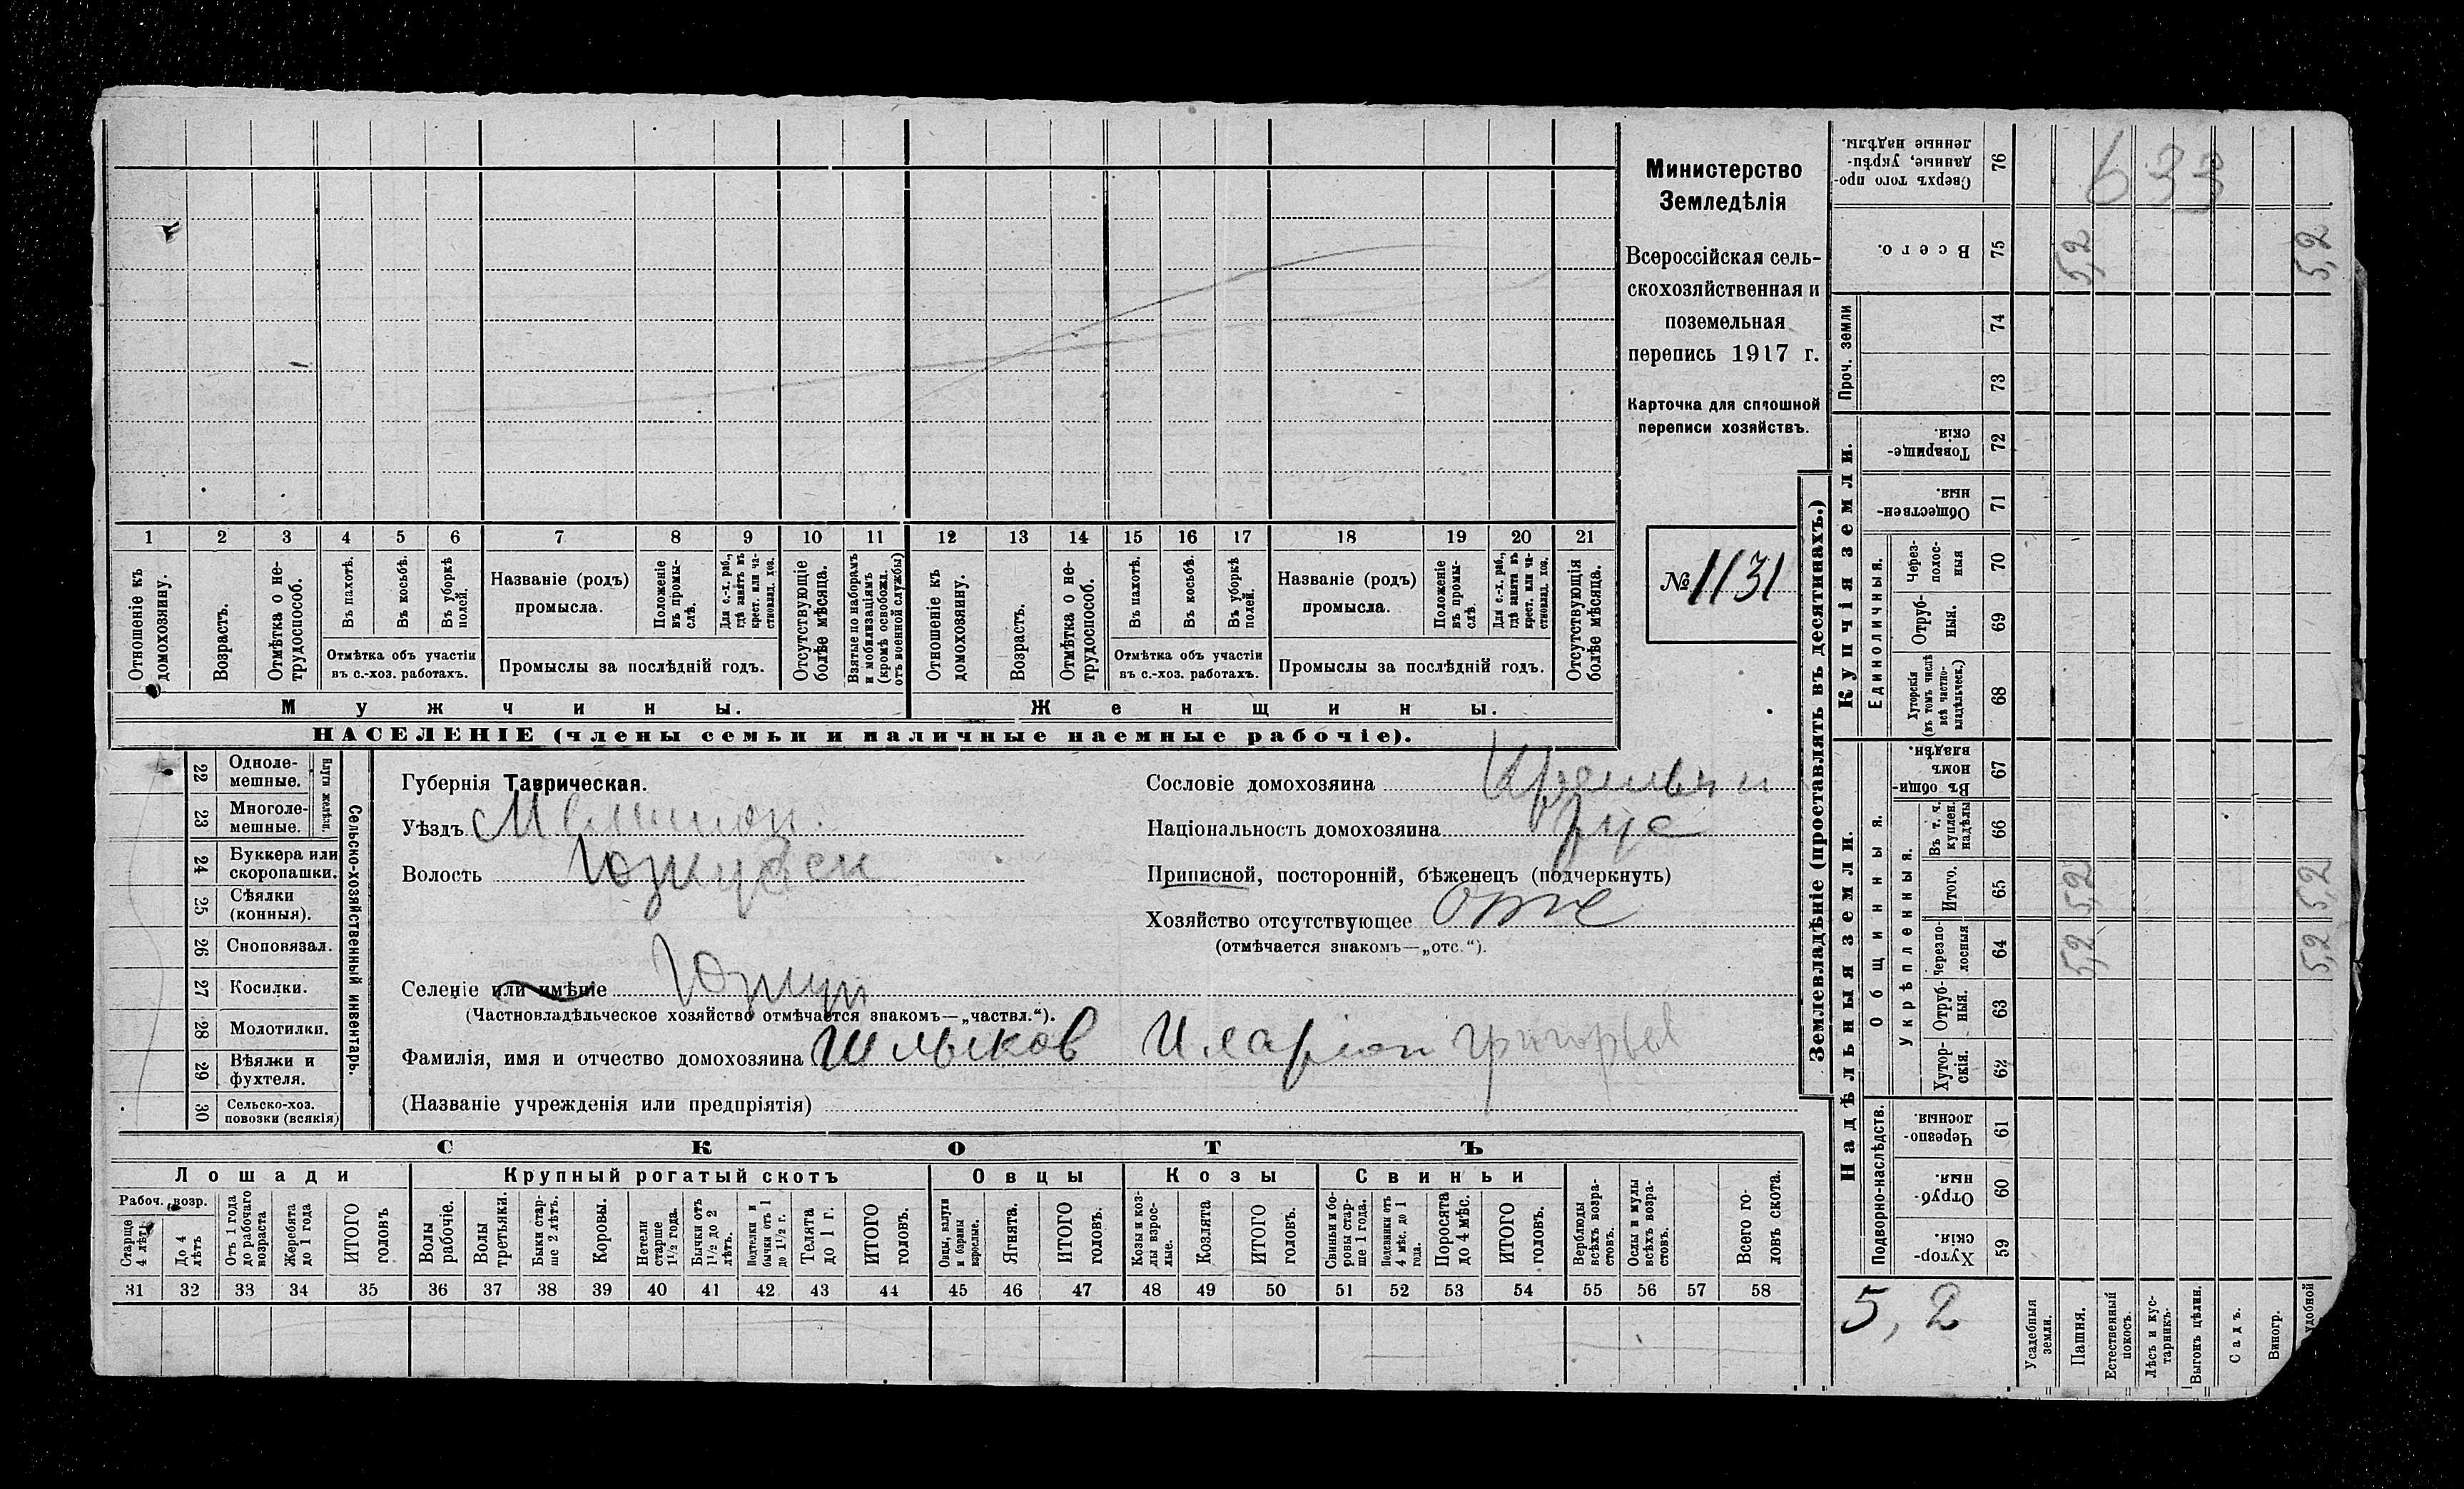 Министерство
Земледѣлія
Всероссійская сель-
скохозяйственная и
поземельная
перепись 1917 г.
Карточка для сплошной
переписи хозяйствъ.
№ 1131
1 2 3 4 5 6 7 8 9 10 11 12 13 14 15 16 17 18 19 20 21
Отношеніе къ домохозяину.
Возрастъ.
Отмѣтка о не-трудоспособ.
Въ пахотѣ.
Въ косьбѣ.
Въ уборкѣ полей.
Отмѣтка объ участіи
въ с.-хоз. работахъ.
Названіе (родъ)
промысла.
Положеніе въ промы-слѣ.
Для с.-х. раб., гдѣ занятъ въ крест. или ча-стновлад. хоз.
Промыслы за послѣдній годъ.
Отсутствующіе болѣе мѣсяца.
Взятые по наборамъ и мобилизаціямъ (кромѣ освобожд. отъ военной службы)
Отношеніе къ домохозяину.
Возрастъ.
Отмѣтка о не-трудоспособ.
Въ пахотѣ.
Въ косьбѣ.
Въ уборкѣ полей.
Отмѣтка объ участіи
въ с.-хоз. работахъ.
Названіе (родъ)
промысла.
Положеніе въ промы-слѣ.
Для с.-х. раб., гдѣ занята въ крест. или ча-стновлад. хоз.
Промыслы за послѣдній годъ.
Отсутствующія болѣе мѣсяца.
Мужчины. Женщины.
НАСЕЛЕНІЕ (члены семьи и наличные наемные рабочіе).
22 Однолемешные.
23 Многолемешные.
Плуги желѣзн.
24 Буккера или скоропашки.
25 Сѣялки (конныя).
26 Сноповязал.
27 Косилки.
28 Молотилки.
29 Вѣялки и фухтеля.
30 Сельско-хоз. повозки (всякія)
Сельско-хозяйственный инвентарь.
Губернія Таврическая.
Уѣздъ
Волость
Селеніе или имѣніе
(Частновладѣльческое хозяйство отмѣчается знакомъ—„частвл.“).
Фамилія, имя и отчество домохозяина Шлыков Иларіон Григорьев
(Названіе учрежденія или предпріятія)
Сословіе домохозяина
Національность домохозяина Рус
Приписной, посторонній, бѣженецъ (подчеркнуть)
Хозяйство отсутствующее Отс
(отмѣчается знакомъ—„отс.“).
СКОТЪ
Лошади Крупный рогатый скотъ Овцы Козы Свиньи
Рабоч. возр.
Старше 4 лѣтъ
До 4 лѣтъ
Отъ 1 года до рабочаго возраста
Жеребята до 1 года
ИТОГО головъ
Волы рабочіе.
Волы третьяки.
Быки стар-ше 2 лѣтъ.
Коровы.
Нетели старше 1½ года.
Бычки отъ 1½ до 2 лѣтъ.
Подтелки и бычки отъ 1 до 1½ г.
Телята до 1 г.
ИТОГО головъ.
Овцы, валухи и бараны взрослые.
Ягнята.
ИТОГО головъ.
Козы и коз-лы взрос-лые.
Козлята
ИТОГО головъ.
Свиньи и бо-ровы стар-ше 1 года.
Подсвинки отъ 4 мѣс. до 1 года.
Поросята до 4 мѣс.
ИТОГО головъ.
Верблюды всѣхъ возра-стовъ.
Ослы и мулы всѣхъ возра-стовъ.
Всего го-ловъ скота.
31 32 33 34 35 36 37 38 39 40 41 42 43 44 45 46 47 48 49 50 51 52 53 54 55 56 57 58
Землевладѣніе (проставлять въ десятинахъ.)
Сверхъ того про-данные, укрѣп-ленные надѣлы. 76
633
Всего. 75 5,2 5,2
Проч. земли
74
73
Купчія земли.
Товарище-скія. 72
Обществен-ныя. 71
Единоличныя.
Через-полос-ныя 70
Отруб-ныя. 69
Хуторскія (въ томъ числѣ всѣ частно-владѣльческ.) 68
Надѣльныя земли.
Общинныя.
Въ общин-номъ владѣн. 67
Укрѣпленныя.
Въ т. ч. куплен. надѣлы 66
Итого. 65 5,2 5,2
Черезпо-лосныя 64 5,2 5,2
Отруб-ныя. 63
Хутор-скія. 62
Подворно-наслѣдств.
Черезпо-лосныя 61
Отруб-ныя. 60
Хутор-скія. 59
5,2
Усадебныя земли.
Пашня.
Естественный покосъ.
Лѣсъ и кус-тарникъ.
Выгонъ цѣлин.
Садъ.
Виногр.
удобной